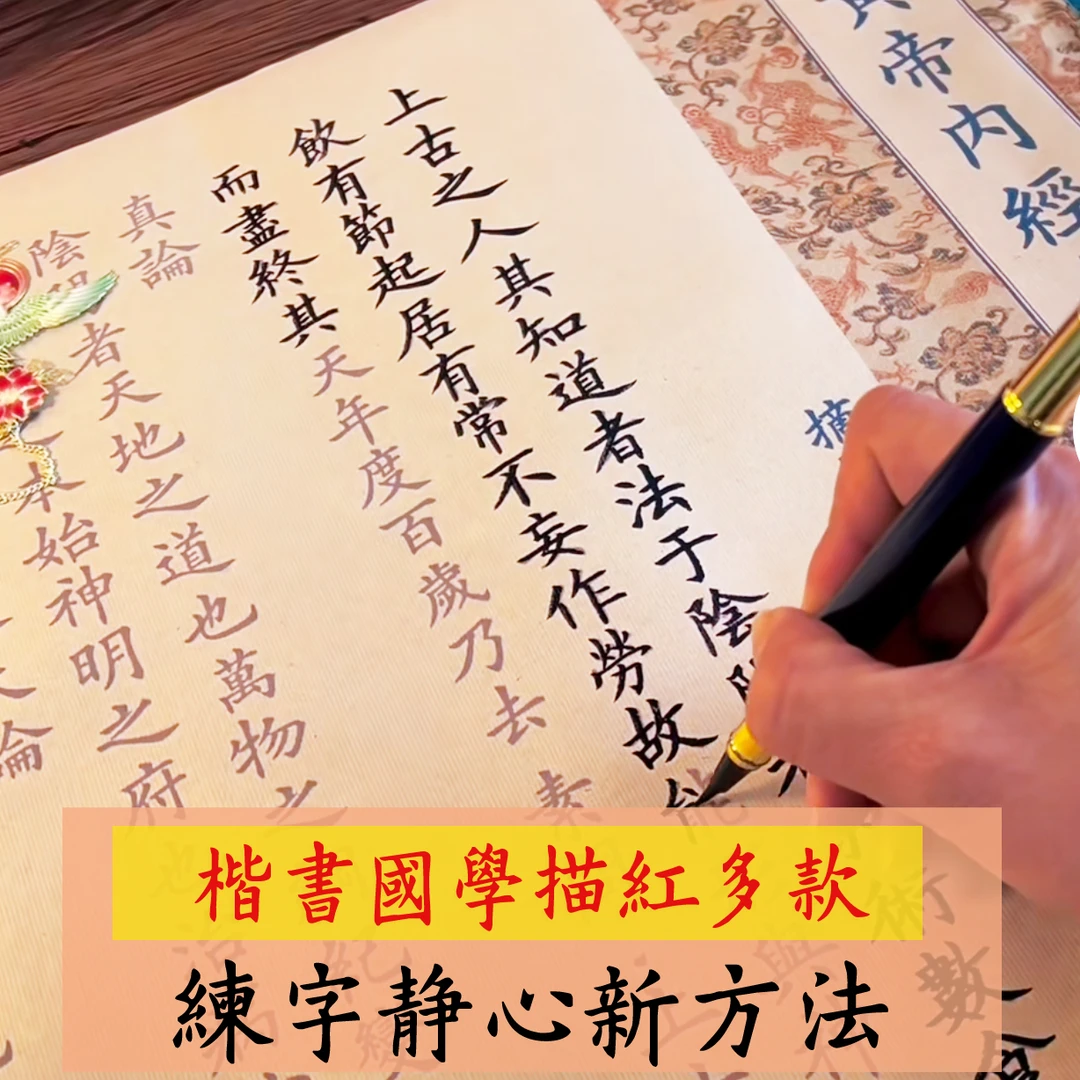 帝内經
摘
上古之人其知道者法于陰
術數
飲有節起居有常不妄作勞故能
與
而盡終其天年度百歲乃去 素
真論
陰
者天地之道也萬物之
紀
本始神明之府也治
論
楷書國學描紅多款
練字静心新方法